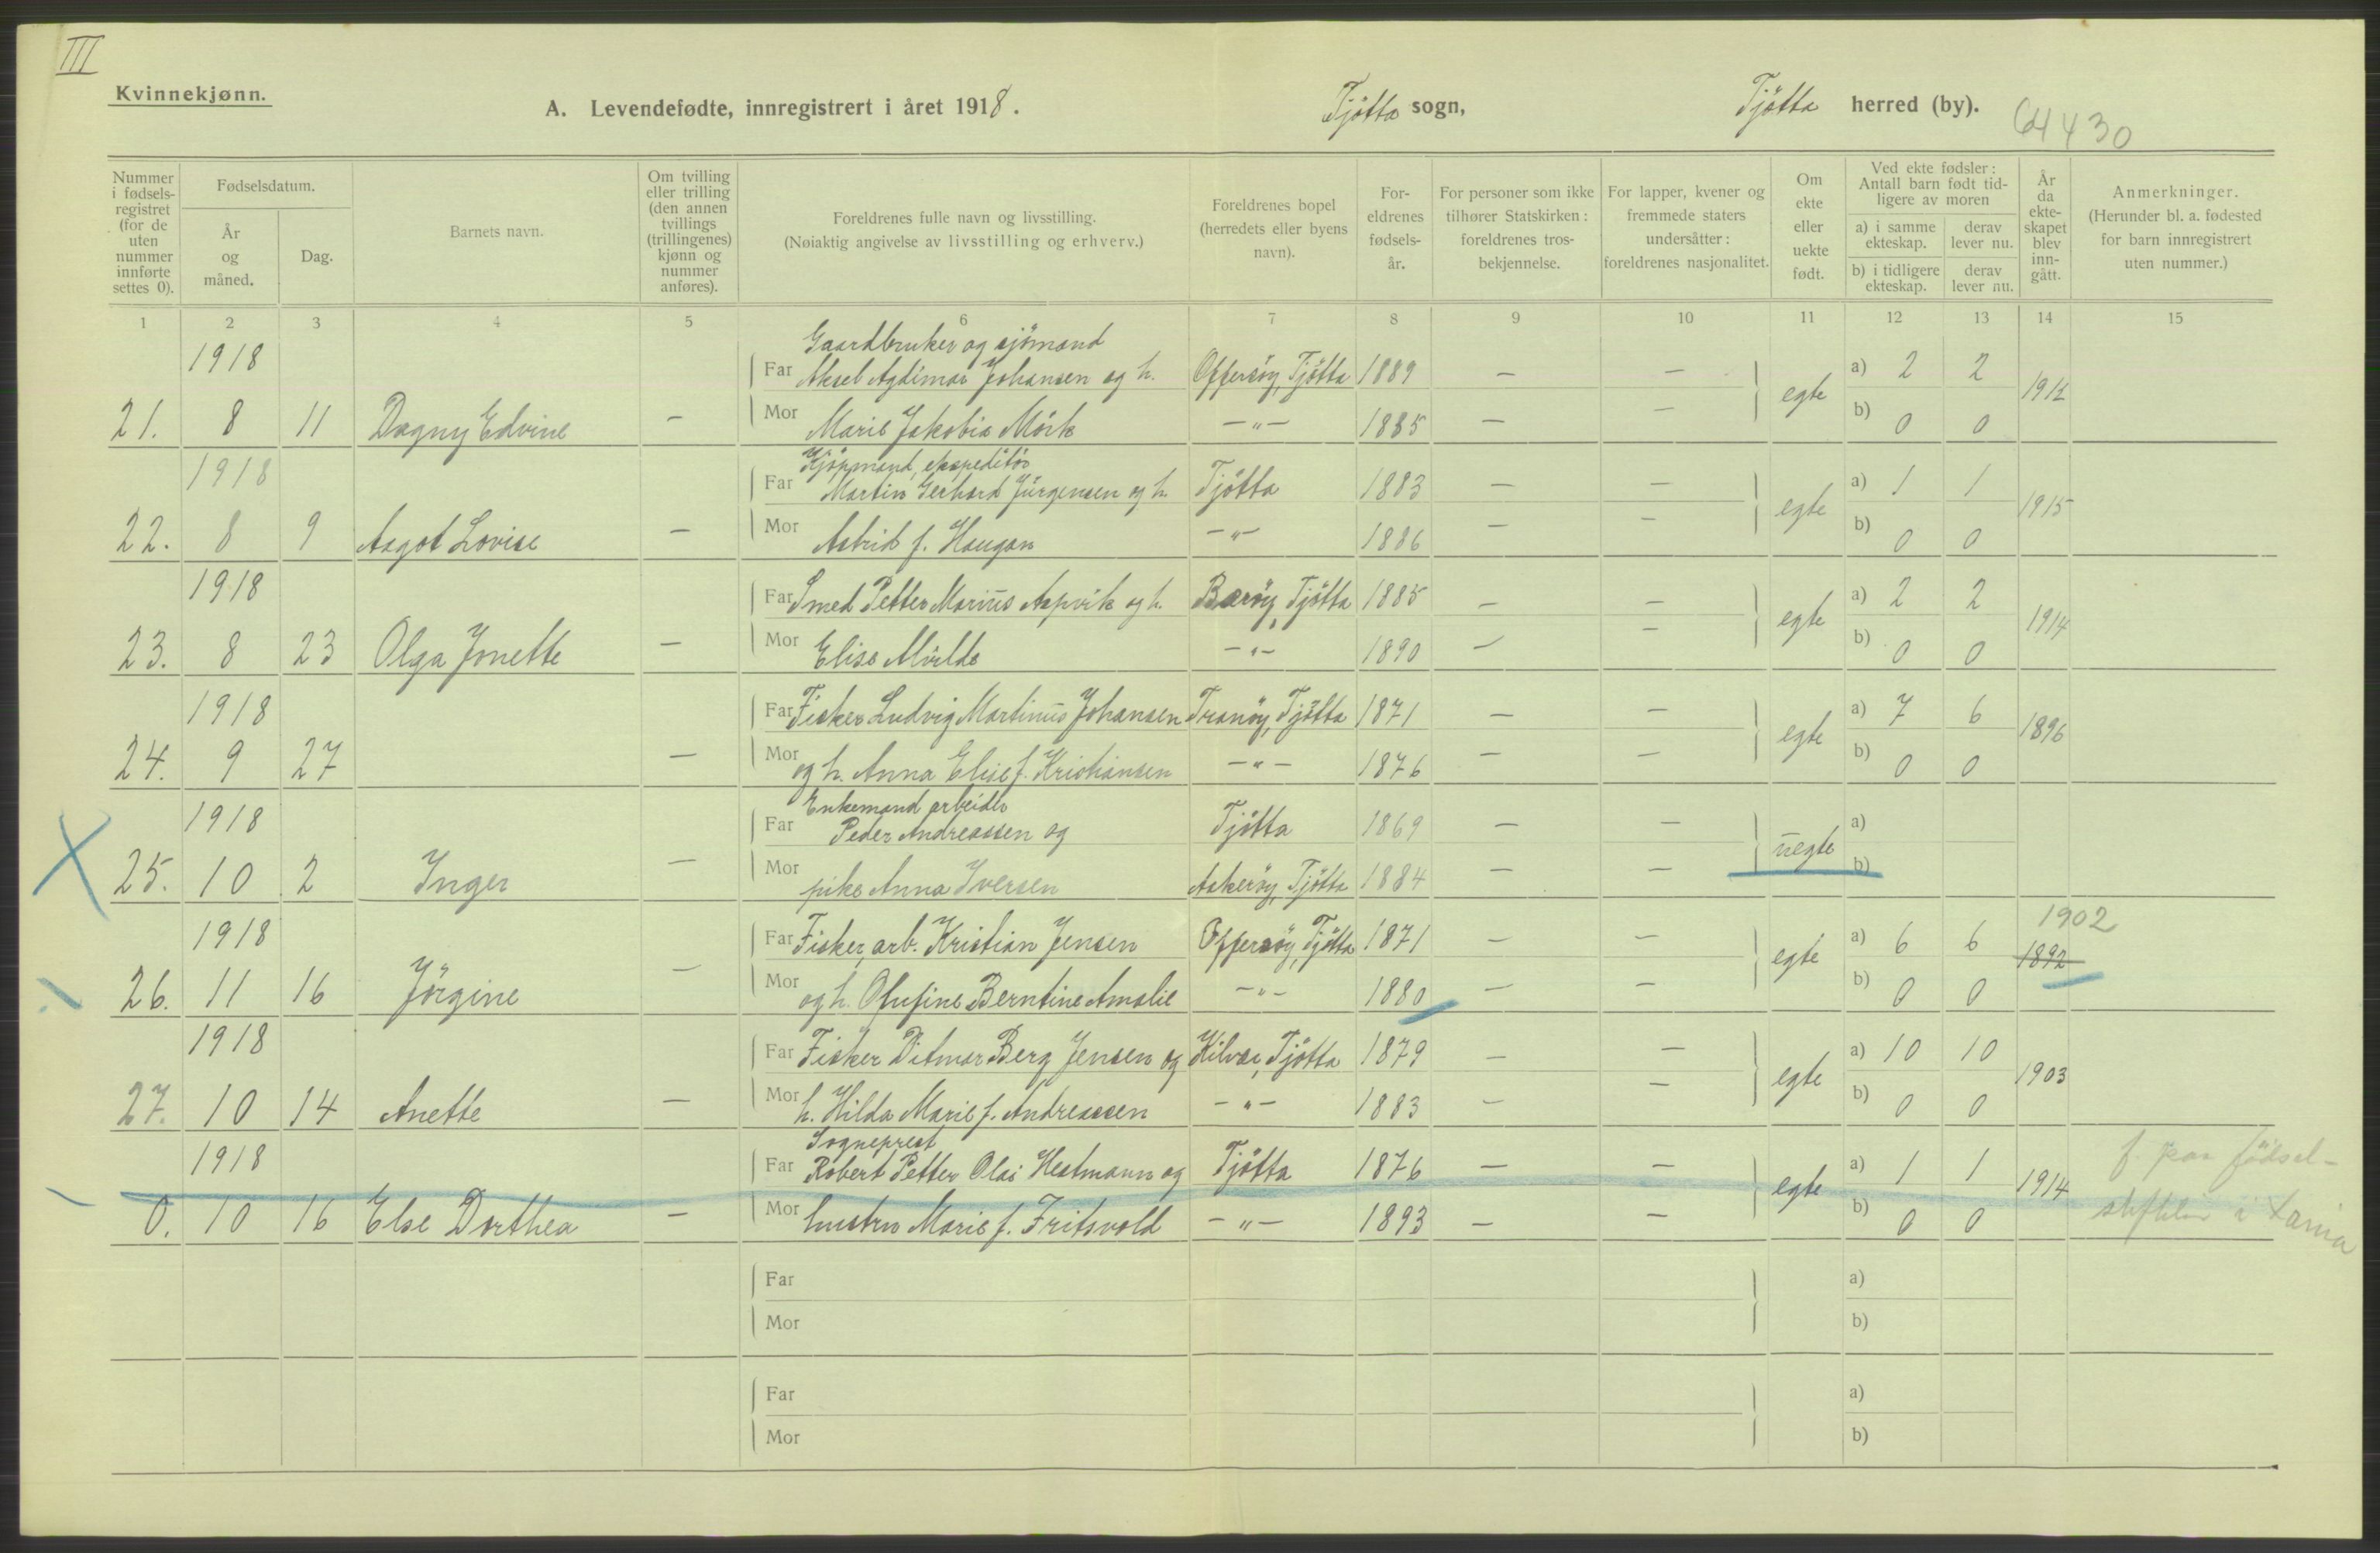 III
Kvinnekjønn.
A. Levendefødte, innregistrert i året 1918. Tjötta sogn, Tjötta herred (by). 64430
Nummer i fødsels-registret (for de uten nummer innførte settes 0).
Fødselsdatum.
År og måned.
Dag.
Barnets navn.
Om tvilling eller trilling (den annen tvillings (trillingenes) kjønn og nummer anføres).
Foreldrenes fulle navn og livsstilling.
(Nøiaktig angivelse av livsstilling og erhverv.)
Foreldrenes bopel (herredets eller byens navn).
For-eldrenes fødsels-år.
For personer som ikke tilhører Statskirken: foreldrenes tros-bekjennelse.
For lapper, kvener og fremmede staters undersåtter: foreldrenes nasjonalitet.
Om ekte eller uekte født.
Ved ekte fødsler: Antall barn født tid-ligere av moren
a) i samme ekteskap. derav lever nu.
b) i tidligere ekteskap. derav lever nu.
År da ekte-skapet blev inn-gått.
Anmerkninger.
(Herunder bl. a. fødested for barn innregistrert uten nummer.)
1 2 3 4 5 6 7 8 9 10 11 12 13 14 15
Gaardbruker og sjömand
1918 Far Aksel Agdimar Johansen og h. Offersöy, Tjötta 1889 — — egte a) 2 2 1912
21. 8 11 Dagny Edvine — Mor Marie Jakobia Mörk —"— 1885 — — b) 0 0
Kjöpmand, ekspeditör
1918 Far Martin Gerhard Jürgensen og h. Tjötta 1883 — — egte a) 1 1 1915
22. 8 9 Aagot Lovise — Mor Astrid f. Haugan —"— 1886 — — b) 0 0
1918 Far Smed Petter Marius Aspvik og h. Baröy, Tjötta 1885 — — egte a) 2 2 1914
23. 8 23 Olga Jonette — Mor Elise Mülde —"— 1890 — — b) 0 0
1918 Far Fisker Ludvig Martinus Johansen Tranöy, Tjötta 1871 — — egte a) 7 6 1896
24. 9 27 — Mor og h. Anna Elise f. Kristiansen —"— 1876 — — b) 0 0
Enkemand arbeider
1918 Far Peder Andreassen og Tjötta 1869 — — uegte a)
25. 10 2 Inger — Mor pike Anna Iversen Askeröy, Tjötta 1884 — — b)
1918 Far Fisker, arb. Kristian Jensen Offersöy, Tjötta 1871 — — egte a) 6 6 1902 1892
26. 11 16 Jörgine — Mor og h. Olufine Berntine Amalie —"— 1880 — — b) 0 0
1918 Far Fisker Ditmar Berg Jensen og Hilvær, Tjötta 1879 — — egte a) 10 10 1903
27. 10 14 Anette — Mor h. Hilda Marie f. Andreassen —"— 1883 — — b) 0 0
Sogneprest
1918 Far Robert Petter Olai Hestmann og Tjötta 1876 — — egte a) 1 1 1914 f. paa födsel-
0. 10 16 Else Dorthea — Mor hustru Marie f. Fritsvold —"— 1893 — — b) 0 0 stiftelse i Xania
Far a)
Mor b)
Far a)
Mor b)